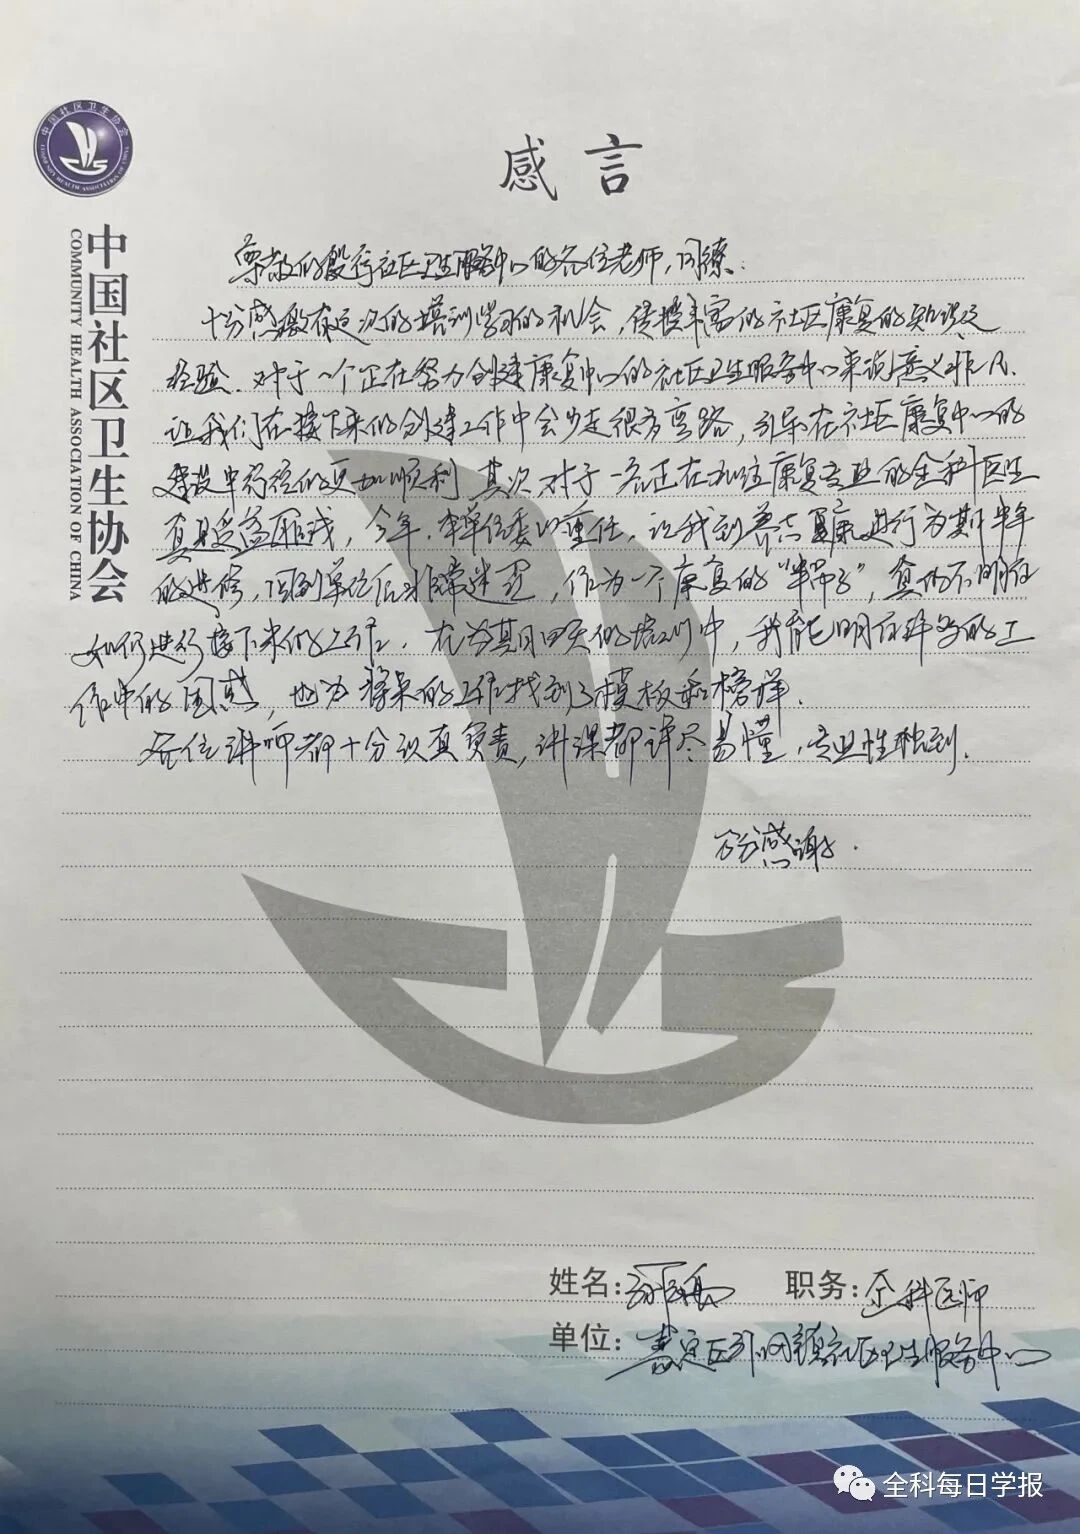 中国社区卫生协会
COMMUNITY HEALTH ASSOCIATION OF CHINA
感言
尊敬的殷行社区卫生服务中心的各位老师，同僚：
十分感激有这次的培训学习的机会，传授丰富的社区康复的知识及
经验．对于一个正在努力创建康复中心的社区卫生服务中心来说意义非凡．
让我们在接下来的创建工作中会少走很多弯路，引导在社区康复中心的
建设中行径的更加顺利 其次 对于一名正在 康复专业的全科医生
真是受益匪浅，今年．本单位委以重任，让我到养志康复进行为期半年
的进修，回到单位后非常迷茫，作为一个康复的“半吊子”，真的不明白
如何进行接下来的工作．在为期四天的培训中，我能明白科室的工
作中的困惑，也为将来的工作找到了模板和榜样．
各位讲师都十分认真负责，讲课都详尽易懂，专业性独到．
万分感谢．
姓名： 职务：全科医师
单位：嘉定区 镇社区卫生服务中心
全科每日学报